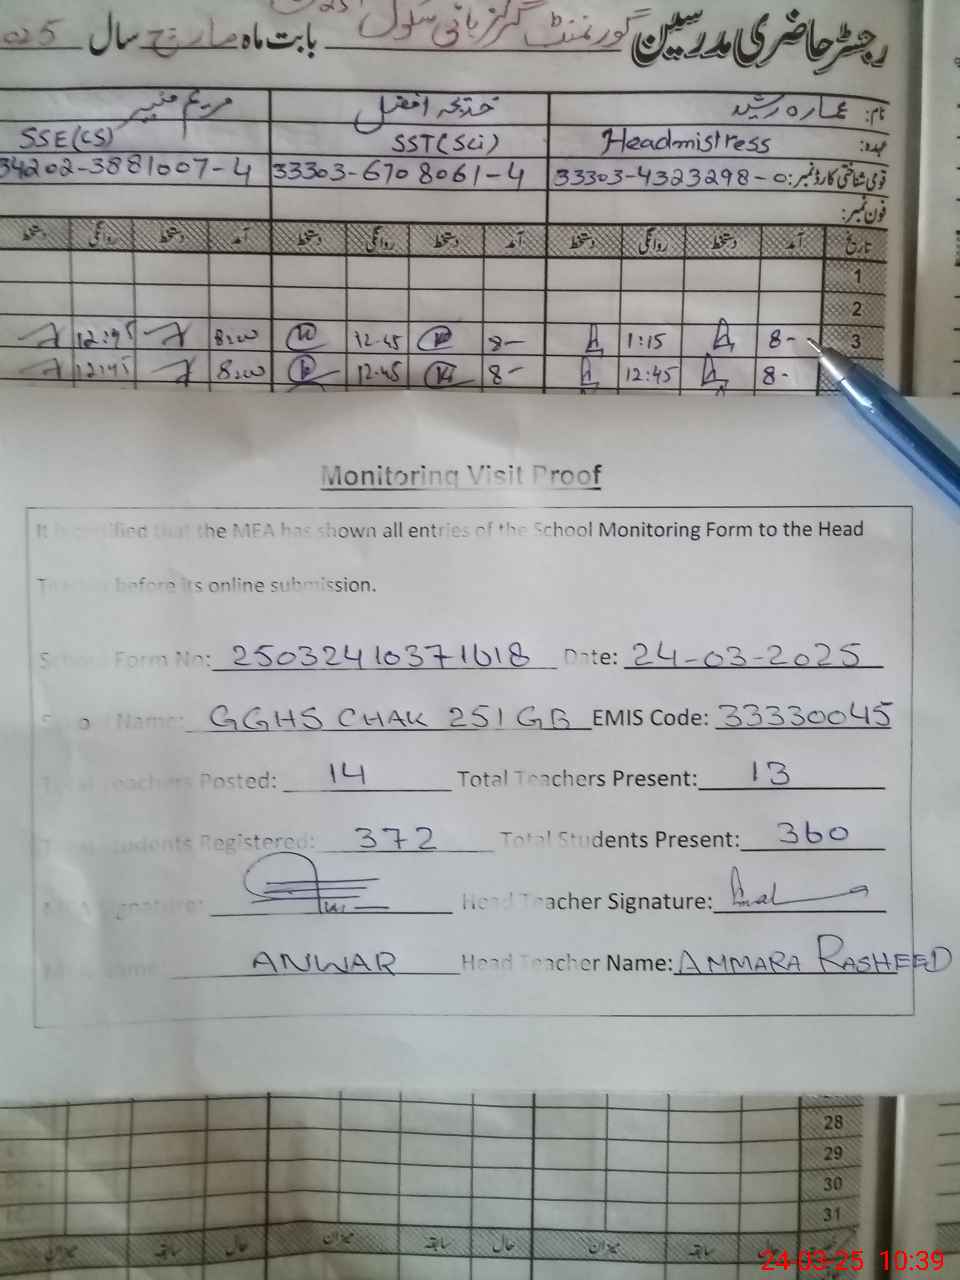 رجسٹر حاضری مدرسین گورنمنٹ گرلز ہائی سکول بابت ماہ مارچ سال 025
نام: عمارہ رشید خدیجہ افضل مریم منیر
عہدہ: Headmistress SST(Sci) SSE(CS)
قومی شناختی کارڈ نمبر: 33303-4323298-0 33303-6708061-4 34202-3881007-4
فون نمبر:
تاریخ آمد دستخط روانگی دستخط آمد دستخط روانگی دستخط آمد دستخط روانگی دستخط
1
2
3 8- 1:15 8- 12:45 8:00 12:45
8- 12:45 8- 12:45 8:00 12:45
Monitoring Visit Proof
It is certified that the MEA has shown all entries of the School Monitoring Form to the Head
Teacher before its online submission.
School Form No: 25032410371618 Date: 24-03-2025
School Name: GGHS CHAK 251 GB EMIS Code: 33330045
Total Teachers Posted: 14 Total Teachers Present: 13
Total Students Registered: 372 Total Students Present: 360
MEA Signature: Head Teacher Signature:
MEA Name: ANWAR Head Teacher Name: AMMARA RASHEED
28
29
30
31
حال سابقہ میزان حال سابقہ میزان حال سابقہ میزان
24-03-25 10:39